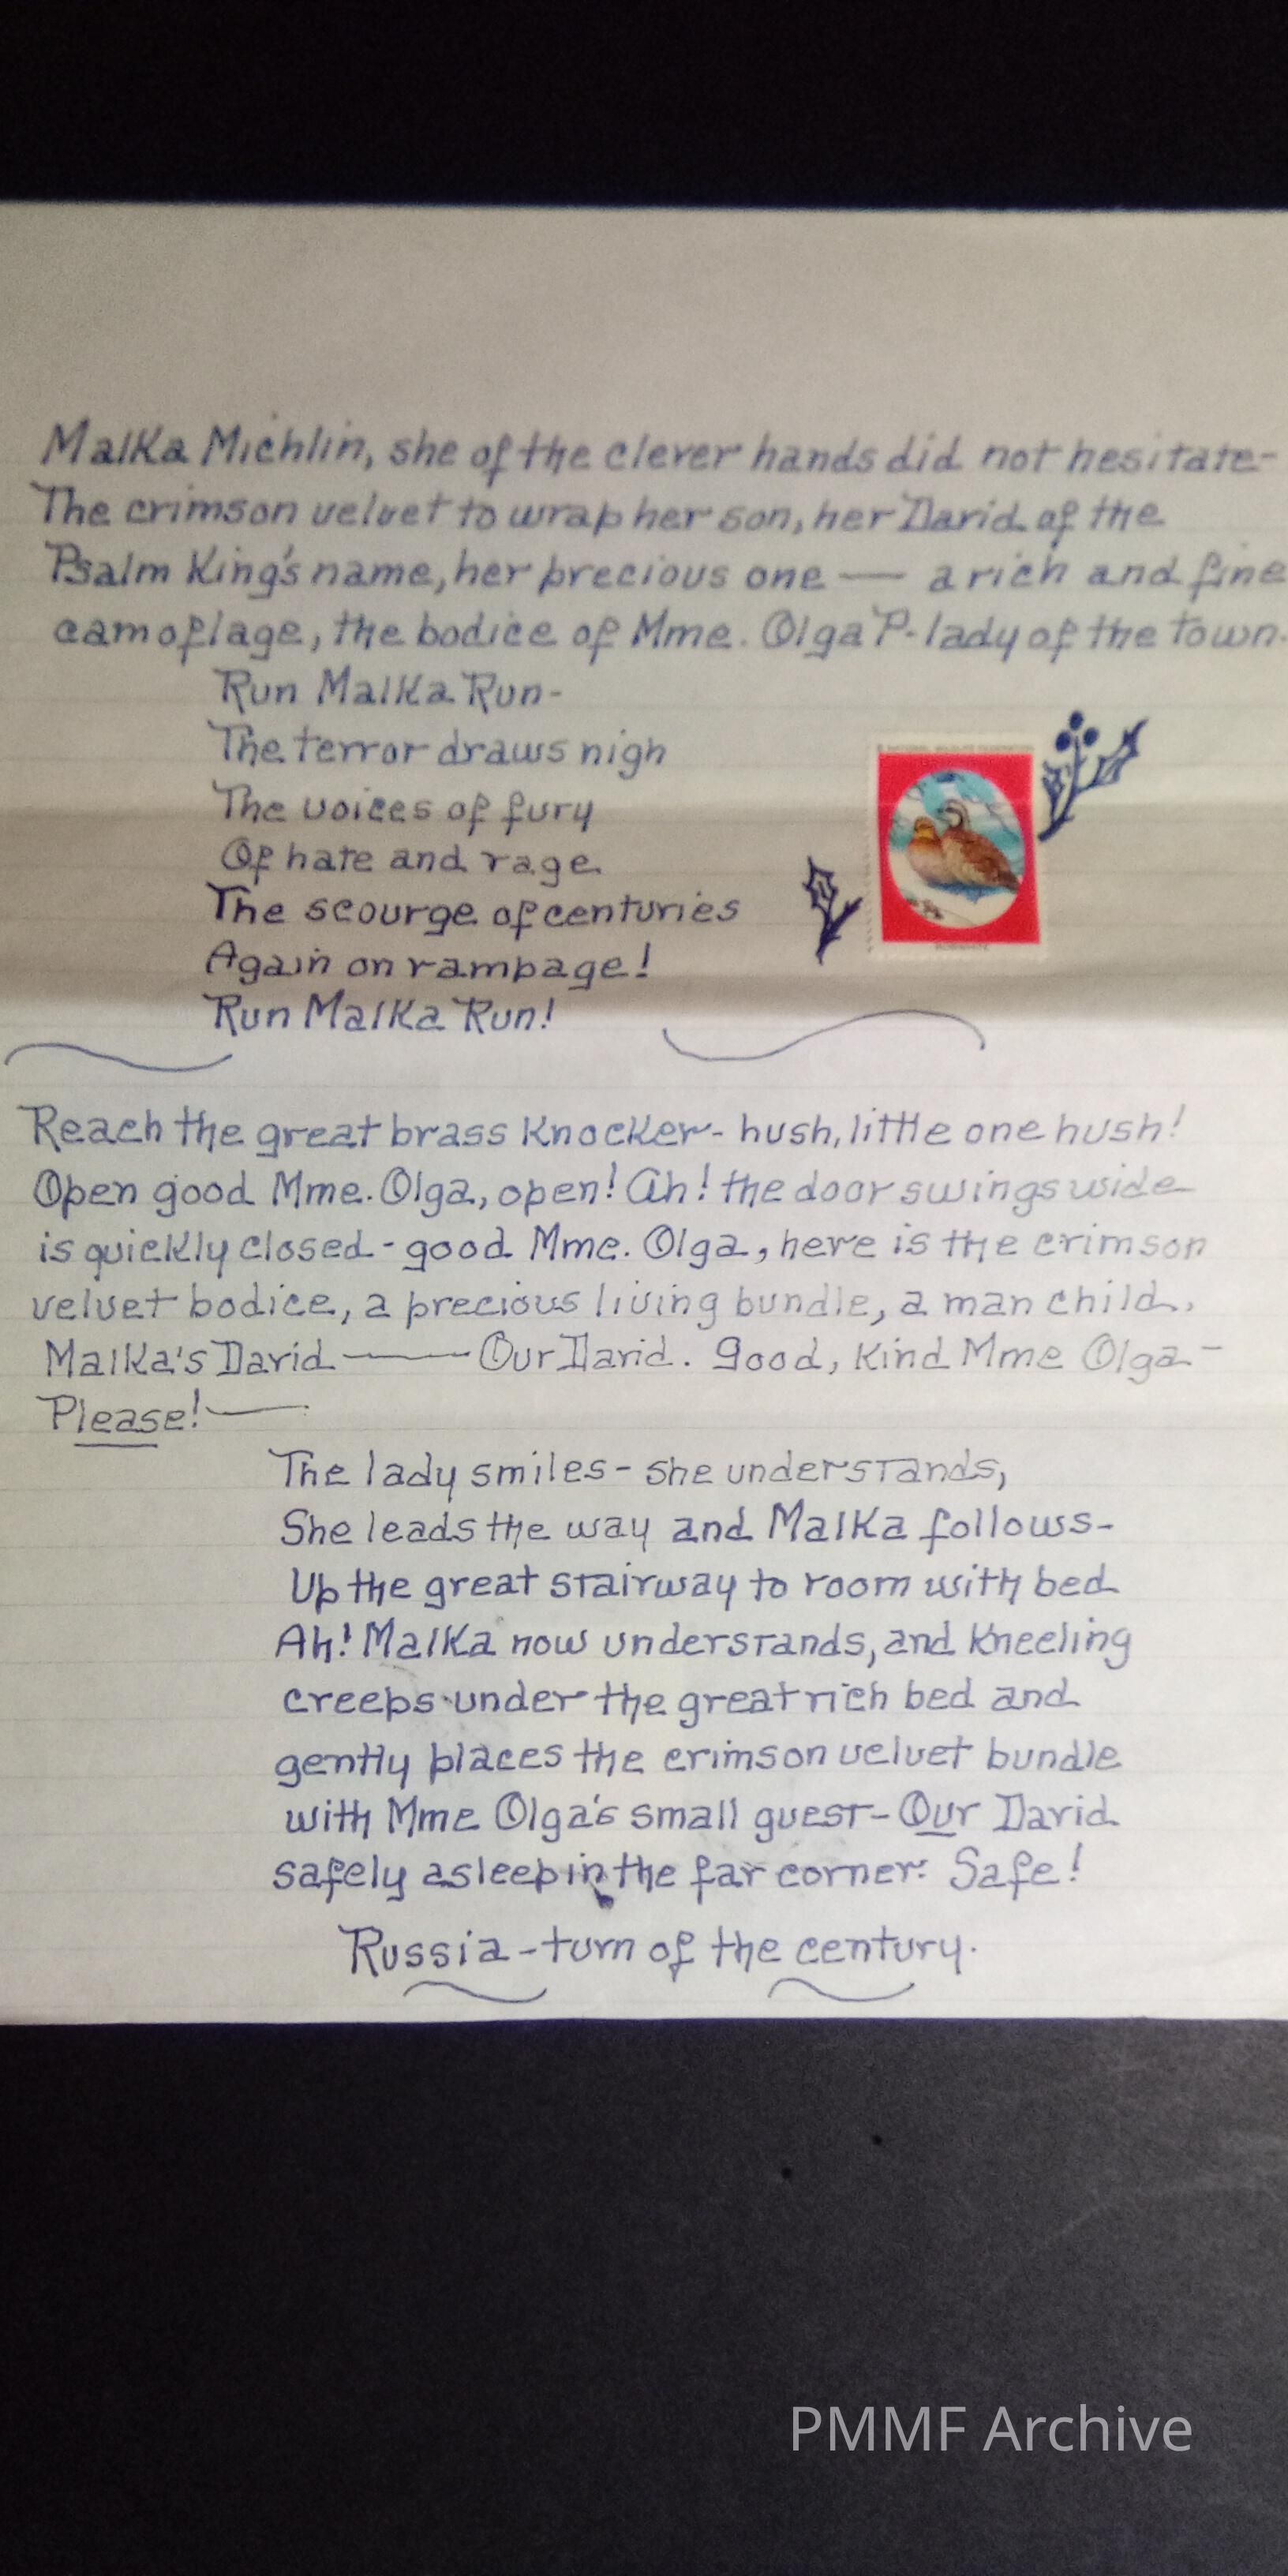 Malka Michlin, she of the clever hands did not hesitate-
The crimson velvet to wrap her son, her David of the
Psalm King's name, her precious one — a rich and fine
camoflage, the bodice of Mme. Olga P- lady of the town.
Run Malka Run-
The terror draws nigh
The voices of fury
Of hate and rage
The scourge of centuries
Again on rampage!
Run Malka Run!
Reach the great brass Knocker- hush, little one hush!
Open good Mme. Olga, open! Ah! the door swings wide
is quickly closed - good Mme. Olga, here is the crimson
velvet bodice, a precious living bundle, a man child.
Malka's David —— Our David. Good, Kind Mme Olga-
Please! —
The lady smiles - she understands,
She leads the way and Malka follows-
Up the great stairway to room with bed
Ah! Malka now understands, and kneeling
creeps under the great rich bed and
gently places the crimson velvet bundle
with Mme Olga's small guest- Our David
safely asleep in the far corner. Safe!
Russia - turn of the century.
PMMF Archive